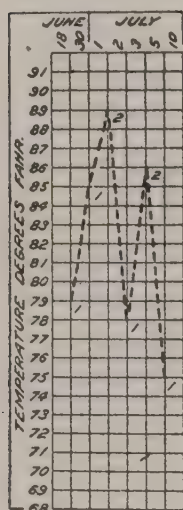 JUNE JULY
18 30 1 2 3 5 10
TEMPERATURE DEGREES FAHR.
91
90
89
2
88
87
86
2
85
84
83
82
81
80
79
78
77
76
75
74
73
72
71
70
69
68